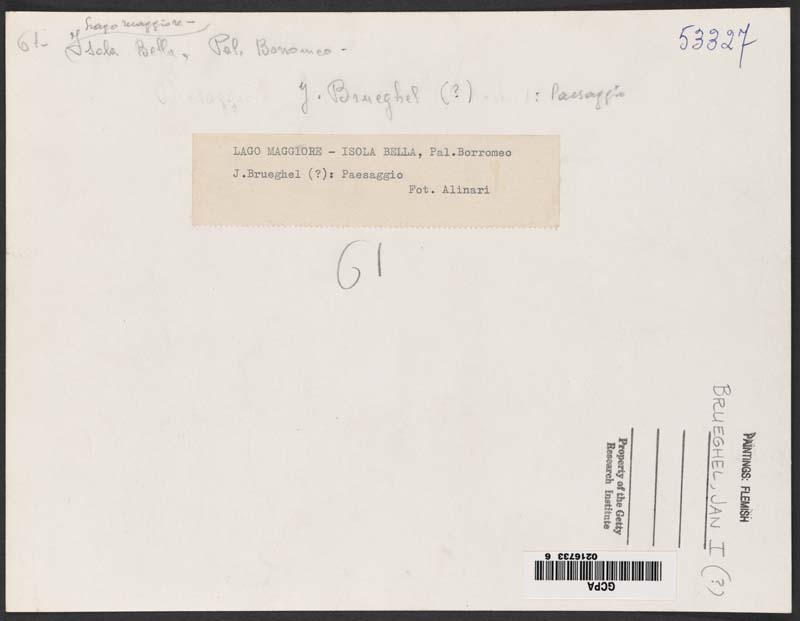 Lago Maggiore -
61- Isola Bella, Pal. Borromeo -
53327
J. Brueghel (?) : Paesaggio
LAGO MAGGIORE - ISOLA BELLA, Pal.Borromeo
J.Brueghel (?): Paesaggio
Fot. Alinari
61
PAINTINGS: FLEMISH
BRUEGHEL, JAN I (?)
Property of the Getty
Research Institute
0216733 6
GCPA